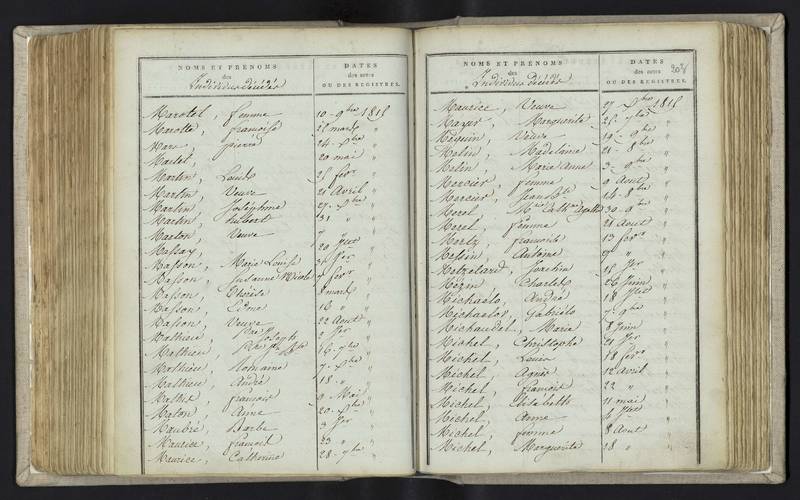 NOMS ET PRÉNOMS
des
Individus décédés
DATES
des actes
OU DES REGISTRES.
Marotel, femme 10 9bre 1815
Marotte, françoise 25 mars "
Mare, pierre 24 Xbre "
Martel, 20 mai "
Martin, Louis 25 fevr "
Martin, Veuve 21 Avril "
Martin, Joséphine 27 Xbre "
Martin, hubert 31 " "
Marton, Veuve
Massay, 20
Masson, Marie Louise
Masson, Susanne Nicole 7 fevr "
Masson, Thérèse 8 mars "
Masson, Edme 16 " "
Masson, Veuve 22 Aout "
Mathieu, Joseph
Mathieu, 16 7bre "
Mathieu, Romaine 7 Xbre "
Mathieu, André 18 " "
Mathis, françois 9 Mai "
Maton, Anne 20 Xbre "
Maubré, Barbe 3 Jer "
Maurice, francois 23 " "
Maurice, Catherine 28 7bre "
NOMS ET PRÉNOMS
des
Individus décédés
DATES
des actes
OU DES REGISTRES.
208
Maurice, Veuve 27 Xbre 1815
Mayer, Marguerite 25 7bre "
Mequin, Veuve 19 9bre "
Melin, Madelaine 21 8bre "
Melin, Marie Anne 3 9bre "
Mercier, femme 9 Aout "
Mercier, Jean Bte 14 8bre "
Merel, Mie Cath. Agathe 30 9bre "
Merel, femme 21 Aout "
Mertz, francois 13 fevr "
Messin, Antoine 27 "
Metzeland, Joachin 15 Jer "
Mezin, Charles 26 Juin "
Michaëlo, André 18 "
Michaelos, Gabriëlo 7 9bre "
Michaudel, Marie 8 Juin "
Michel, Christophe 21 Jer "
Michel, Louis 18 fevr "
Michel, Agnès 12 Avril "
Michel, francois 22 " "
Michel, Elisabeth 11 mai "
Michel, Anne
Michel, femme 8 Aout "
Michel, Marguerite 18 " "